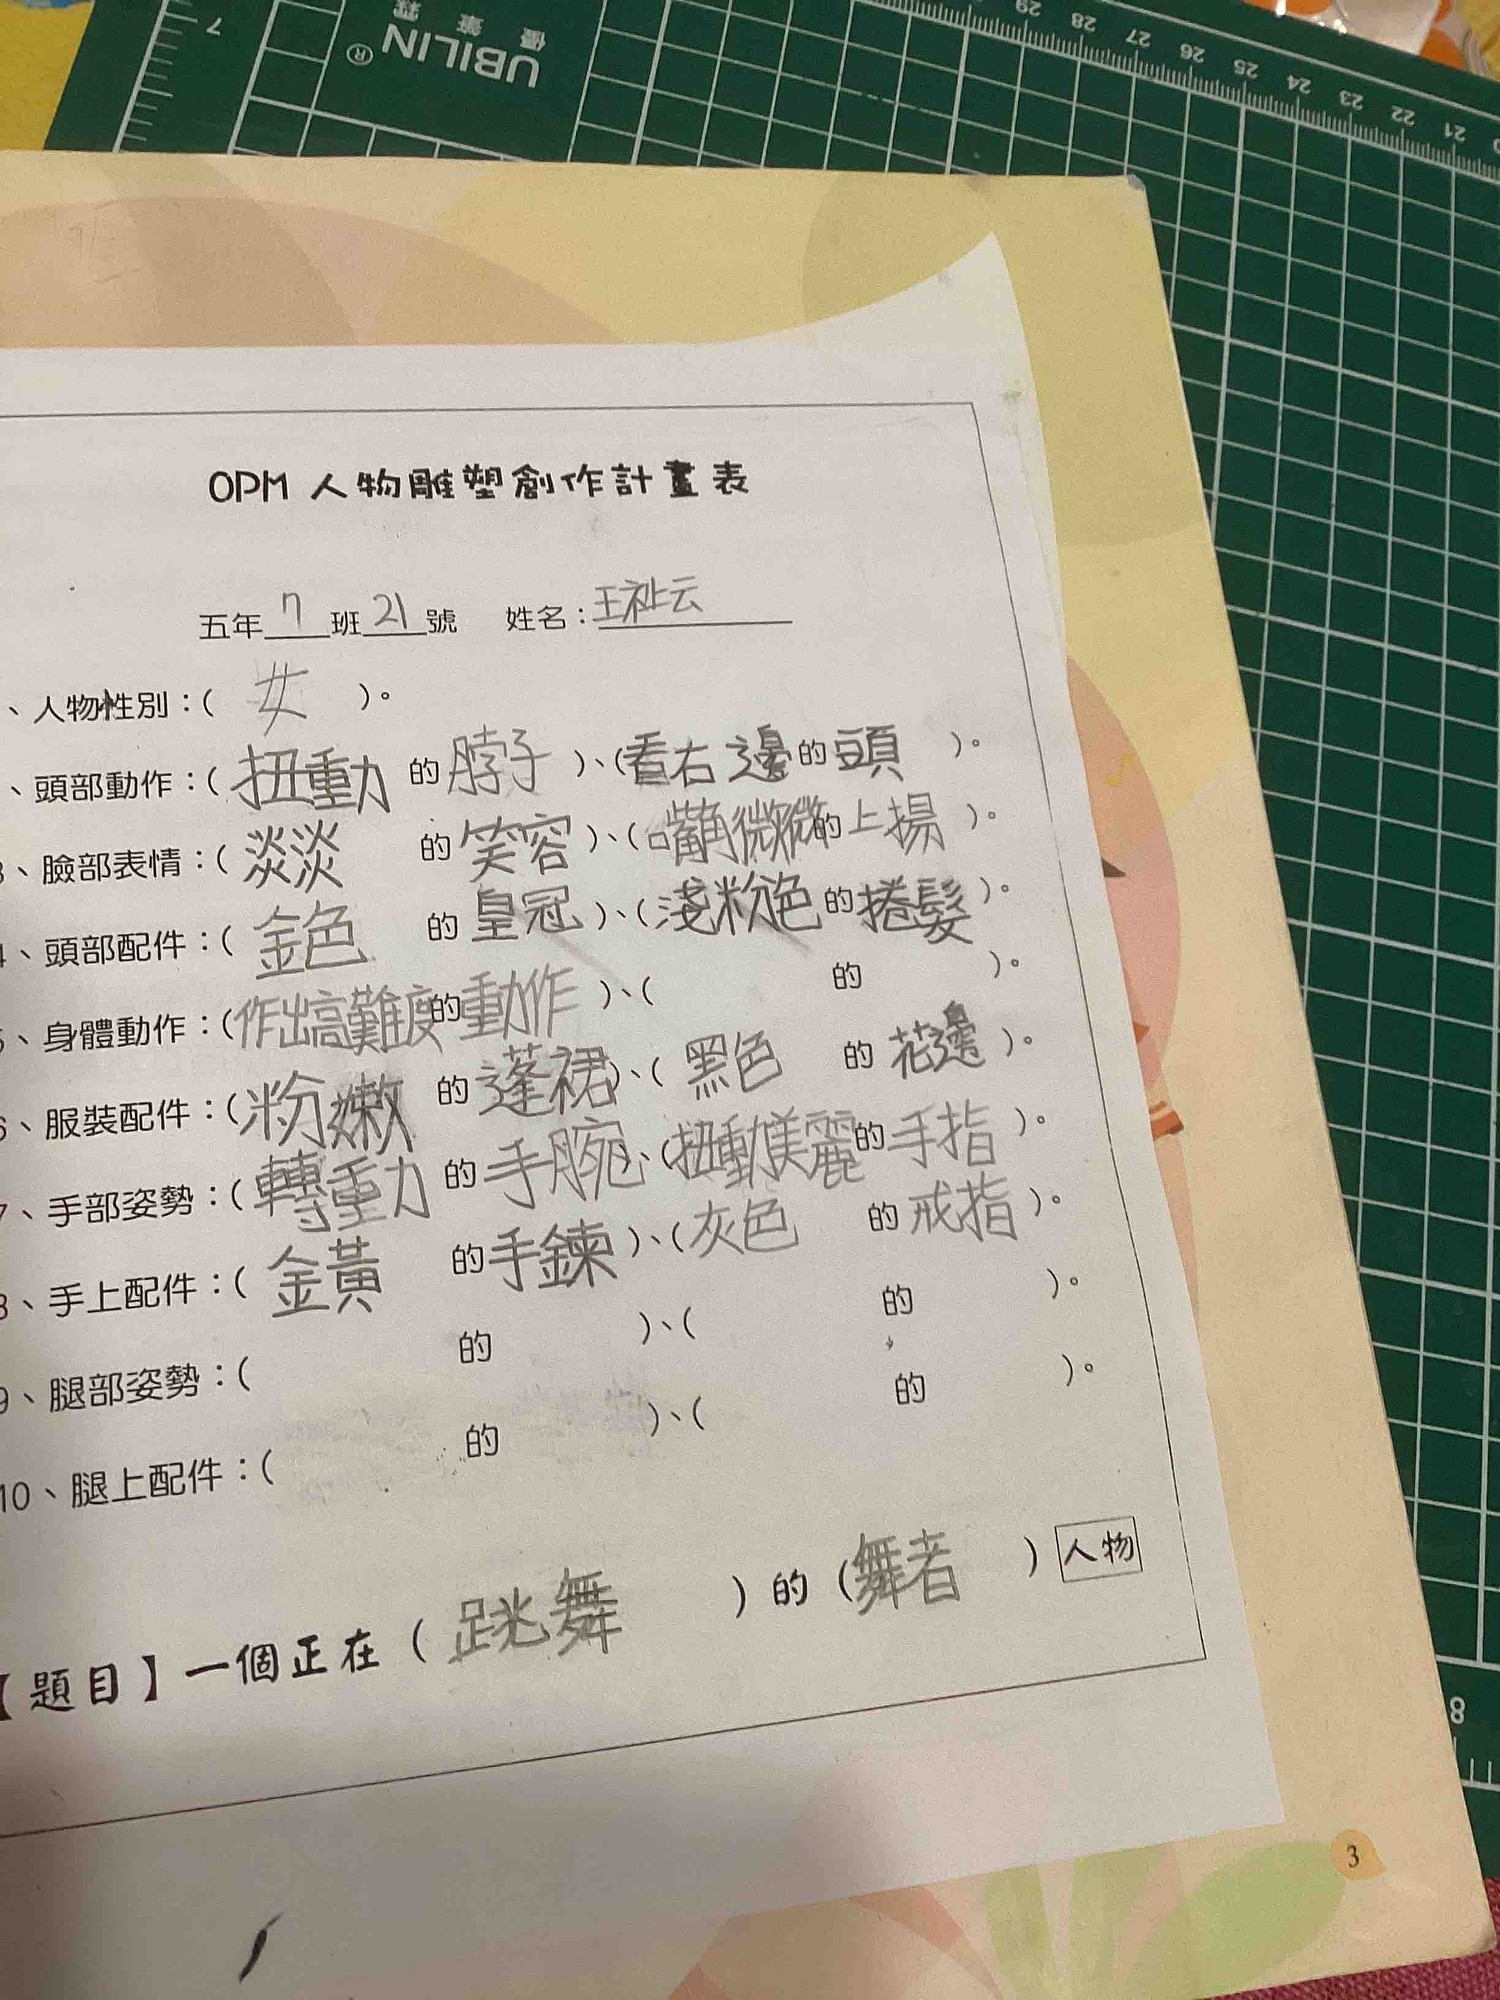 7
UBILIN ®
優筆霖
29 28 27 26 25 24 23 22 21
OPM 人物雕塑創作計畫表
五年 7 班 21 號 姓名：王祉云
、人物性別：( 女 )。
、頭部動作：( 扭動 的 脖子 )、( 看右邊 的 頭 )。
3、臉部表情：( 淡淡 的 笑容 )、( 嘴角微微 的 上揚 )。
4、頭部配件：( 金色 的 皇冠 )、( 淺粉色 的 捲髮 )。
5、身體動作：( 作出高難度 的 動作 )、( 的 )。
6、服裝配件：( 粉嫩 的 蓬裙 )、( 黑色 的 花邊 )。
7、手部姿勢：( 轉動 的 手腕 )、( 扭動美麗 的 手指 )。
8、手上配件：( 金黃 的 手鍊 )、( 灰色 的 戒指 )。
9、腿部姿勢：( 的 )、( 的 )。
10、腿上配件：( 的 )、( 的 )。
【題目】一個正在 ( 跳舞 ) 的 ( 舞者 ) 人物
8
3